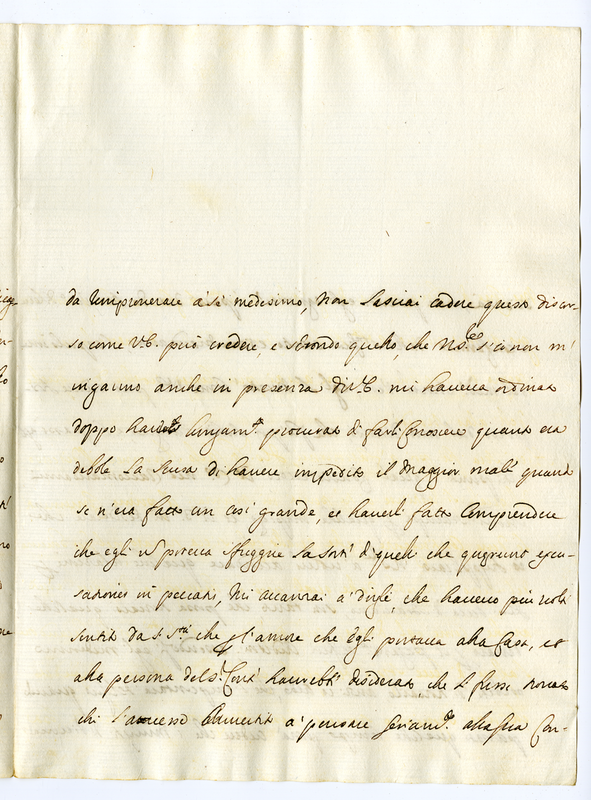 da rimproverare à sè medesimo, non lasciai cadere questo discor-
so come V.E. può credere, e secondo quello, che N.S.re s'io non m'
inganno anche in presenza di V.E. mi haveva ordinato
doppo haverlo lungam.te procurato di farli conoscere quanto era
debole la scusa di havere impedito il maggior male quando
se n'era fatto un così grande, et haverli fatto comprendere
che egli non poteva sfuggire la sorte di quelli che quaerunt excu-
sationes in peccatis, mi avanzai a' dirle, che havevo più volte
sentito da S. S.tà che l'amore che egli portava alla Casa, et
alla persona del S.r Conte haurebbe desiderato, che si fusse trovato
chi l'avesse avvertito a' pensare seriam.te alla sua Con-